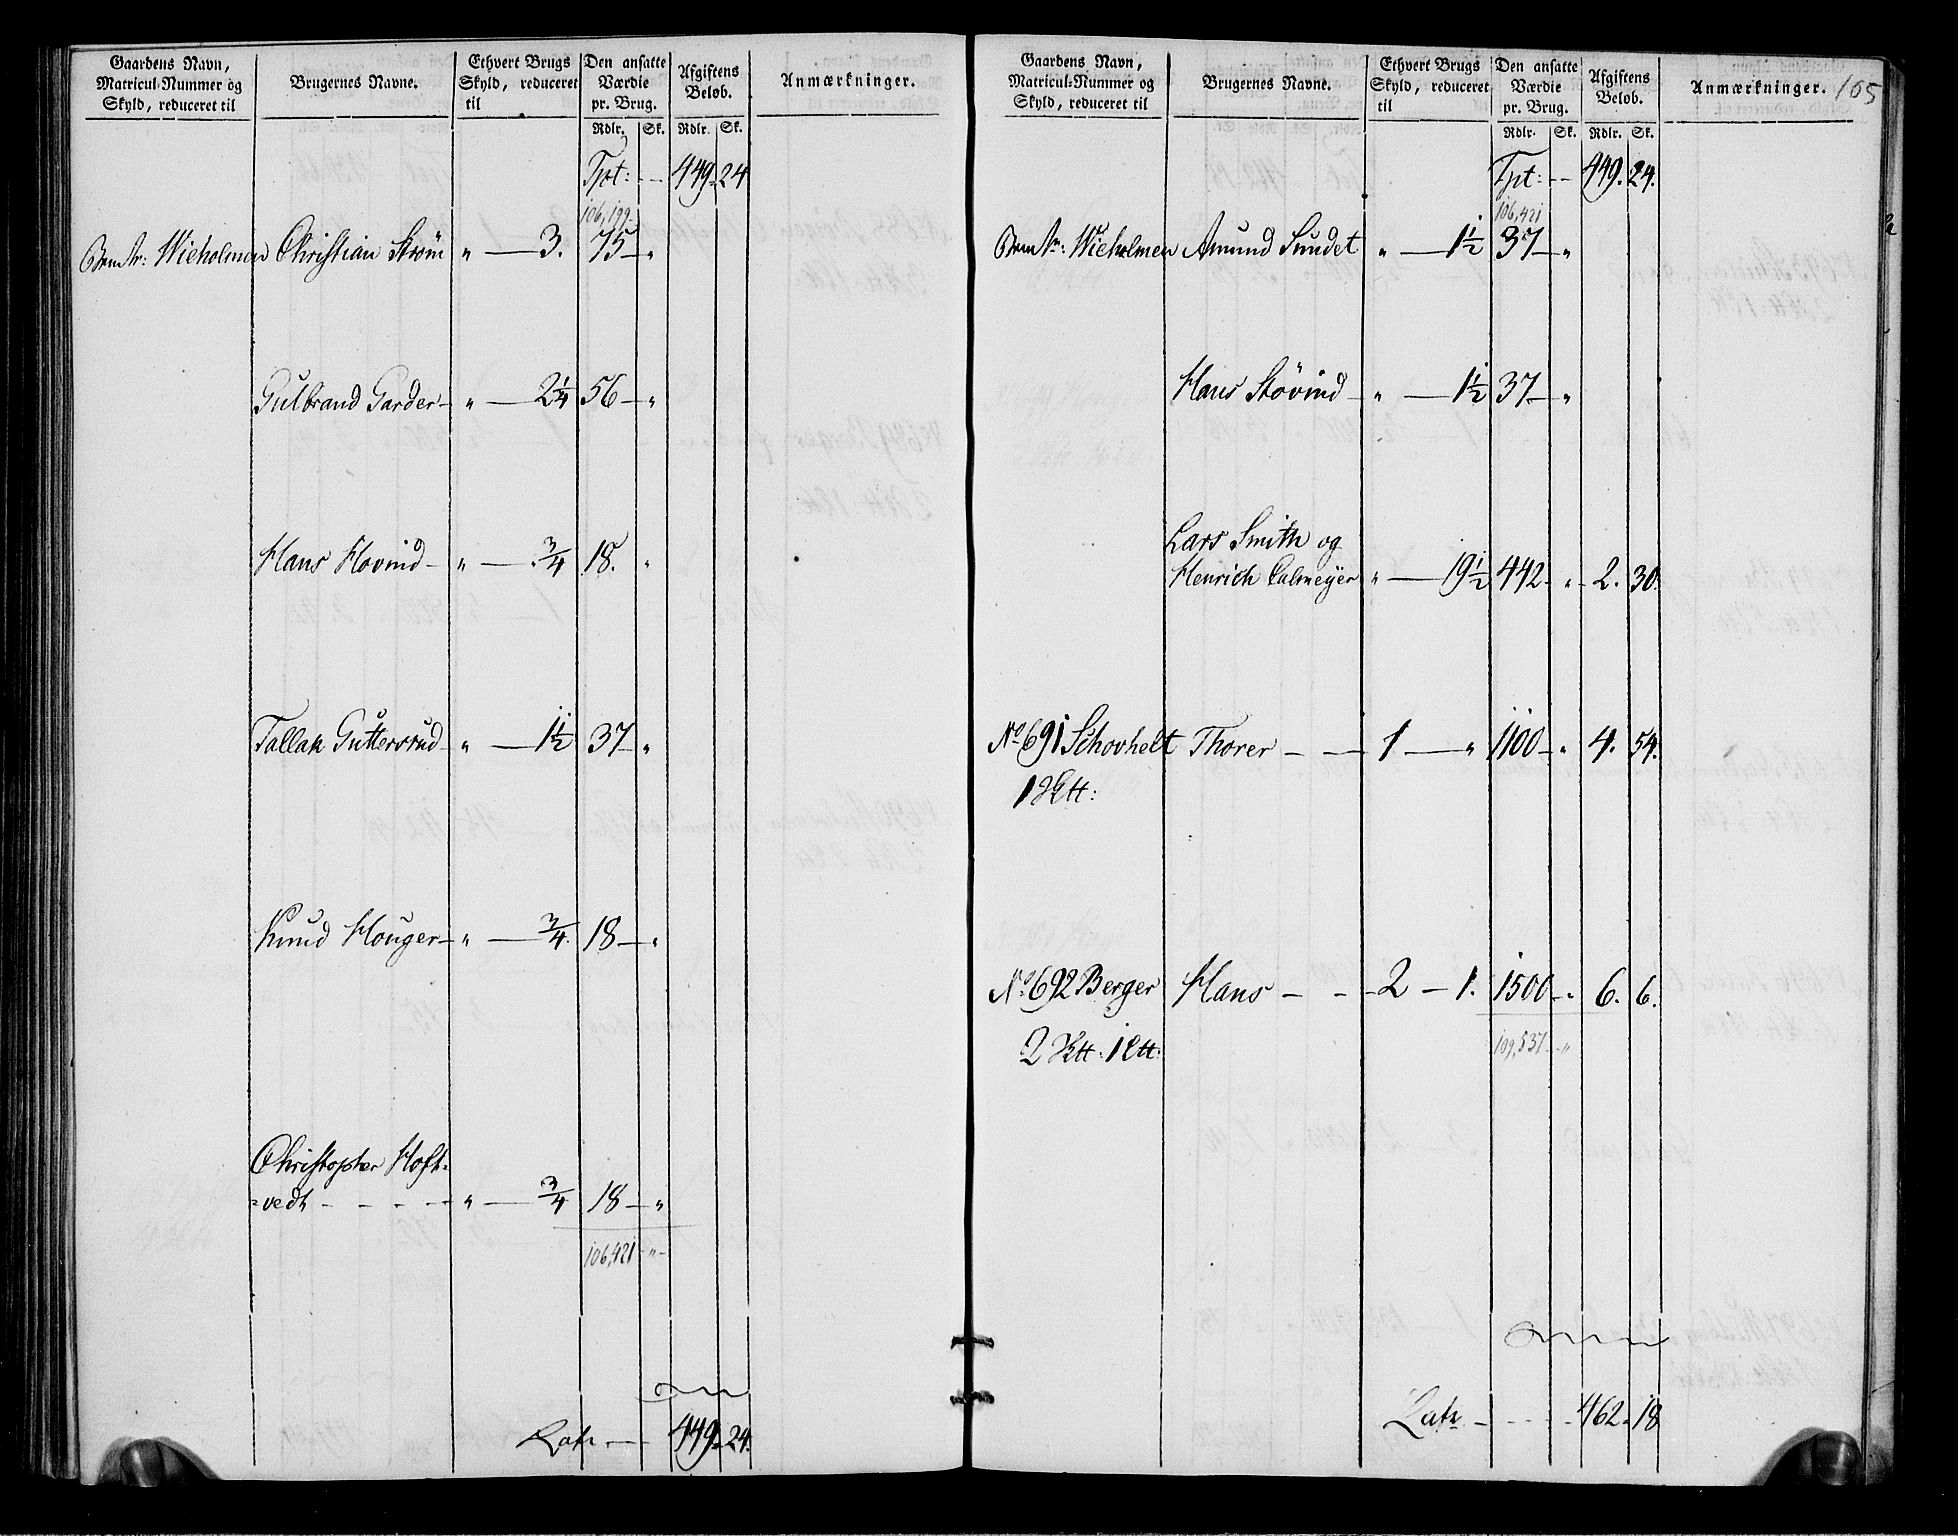 Gaardens Navn,
Matricul-Nummer og
Skyld, reduceret til
Brugernes Navne.
Ethvert Brugs
Skyld, reduceret
til
Den ansatte
Værdie
pr. Brug.
Afgiftens
Beløb.
Anmærkninger.
Rdlr. Sk. Rdlr. Sk.
Tpt: — 449. 24
106,199.
Wieholmen Christian Strøm „ — 3. 75 — „
Gulbrand Garder — „ — 2 1/4 56 — „
Hans Hovind — „ — 3/4 18. „
Tallak Guttersrud — „ — 1 1/2 37 „
Knud Houger — „ — 3/4 18 — „
Christopher Hoft=
=vedt - - - - „ — 3/4 18 — „
106,421 - „ -
Latr — 449. 24.
Gaardens Navn,
Matricul-Nummer og
Skyld, reduceret til
Brugernes Navne.
Ethvert Brugs
Skyld, reduceret
til
Den ansatte
Værdie
pr. Brug.
Afgiftens
Beløb.
Anmærkninger.
105
Rdlr. Sk. Rdlr. Sk.
Tpt: — 449. 24.
106,421
Wieholmen Amund Sundet „ — 1 1/2 37 — „
Hans Stövind — „ — 1 1/2 37 — „
Lars Smith og
Henrich Calmeÿer „ — 19 1/2 442 - „ - 2. 30.
No 691 Schovhelt Thorer — — 1 — „ 1100 — „ 4. 54.
1 Sktt:
No 692 Berger Hans — - - 2 — 1. 1500 - „ 6. 6.
2 Sktt: 1 Ltt:
109,537 - „
Latr - - - - 462. 18